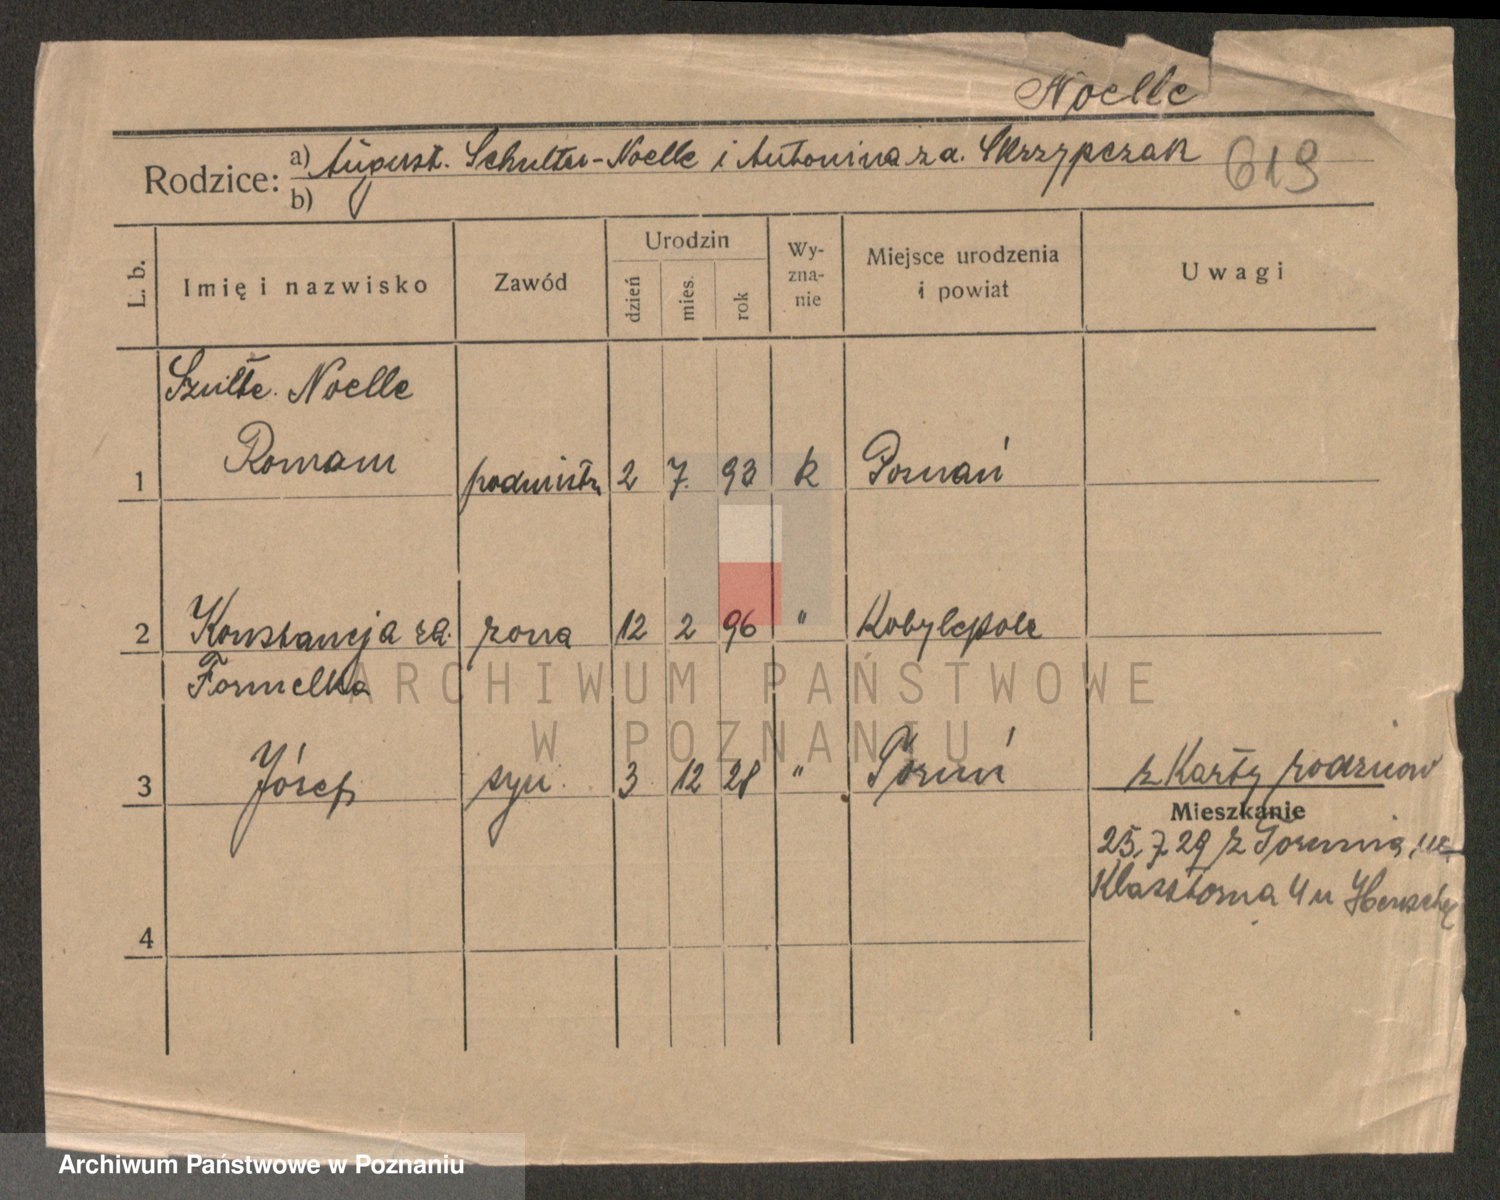 Noelle
Rodzice: a) August. Schulter-Noelle i Antonina z d. Skrzypczak 619
b)
L. b. Imię i nazwisko Zawód Urodzin dzień mies. rok Wy-zna-nie Miejsce urodzenia i powiat Uwagi
Szulte. Noelle
1 Roman podmistrz 2 7. 93 k Poznań
2 Konstancja z d. żona 12 2 96 " Kobylepole
Formelka
3 Józef syn. 3 12 28 " Toruń z Karty rodziców
Mieszkanie
25.7.29 z Torunia, ul.
Klasztorna 4 u
4
ARCHIWUM PAŃSTWOWE
W POZNANIU
Archiwum Państwowe w Poznaniu